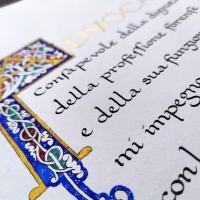 AVVOCA
Consapevole della dignit
della professione forense
e della sua funzion
mi impegno
con l